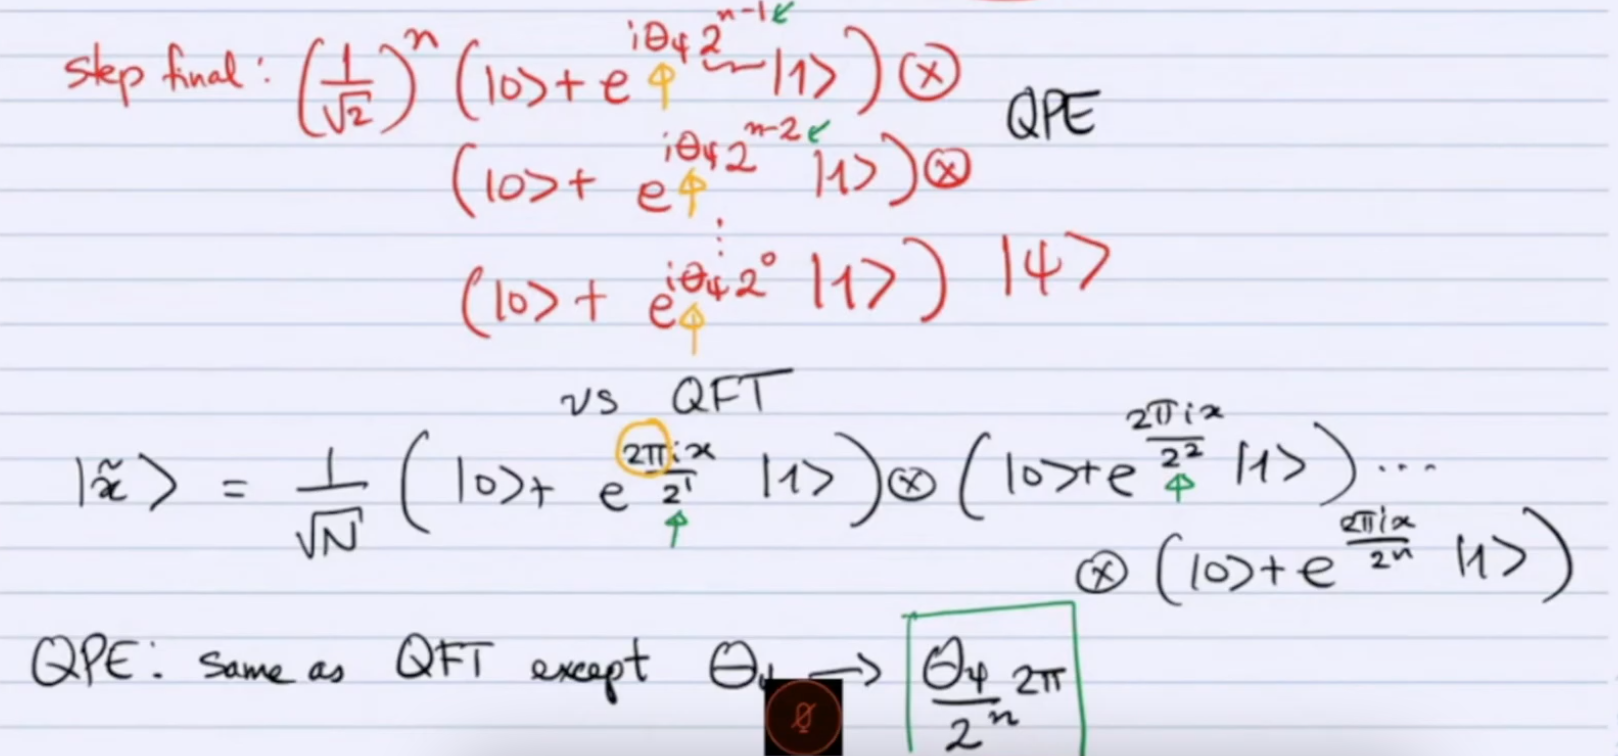 step final: (1/√2)^n (|0> + e^{iθ_ψ 2^{n-1}} |1>) ⊗
QPE
(|0> + e^{iθ_ψ 2^{n-2}} |1>) ⊗
⋮
(|0> + e^{iθ_ψ 2^0} |1>) |ψ>
vs QFT
|x̃> = 1/√N (|0> + e^{2πix/2^1} |1>) ⊗ (|0> + e^{2πix/2^2} |1>) ...
⊗ (|0> + e^{2πix/2^n} |1>)
QPE: same as QFT except θ_ψ → θ_ψ/2^n 2π